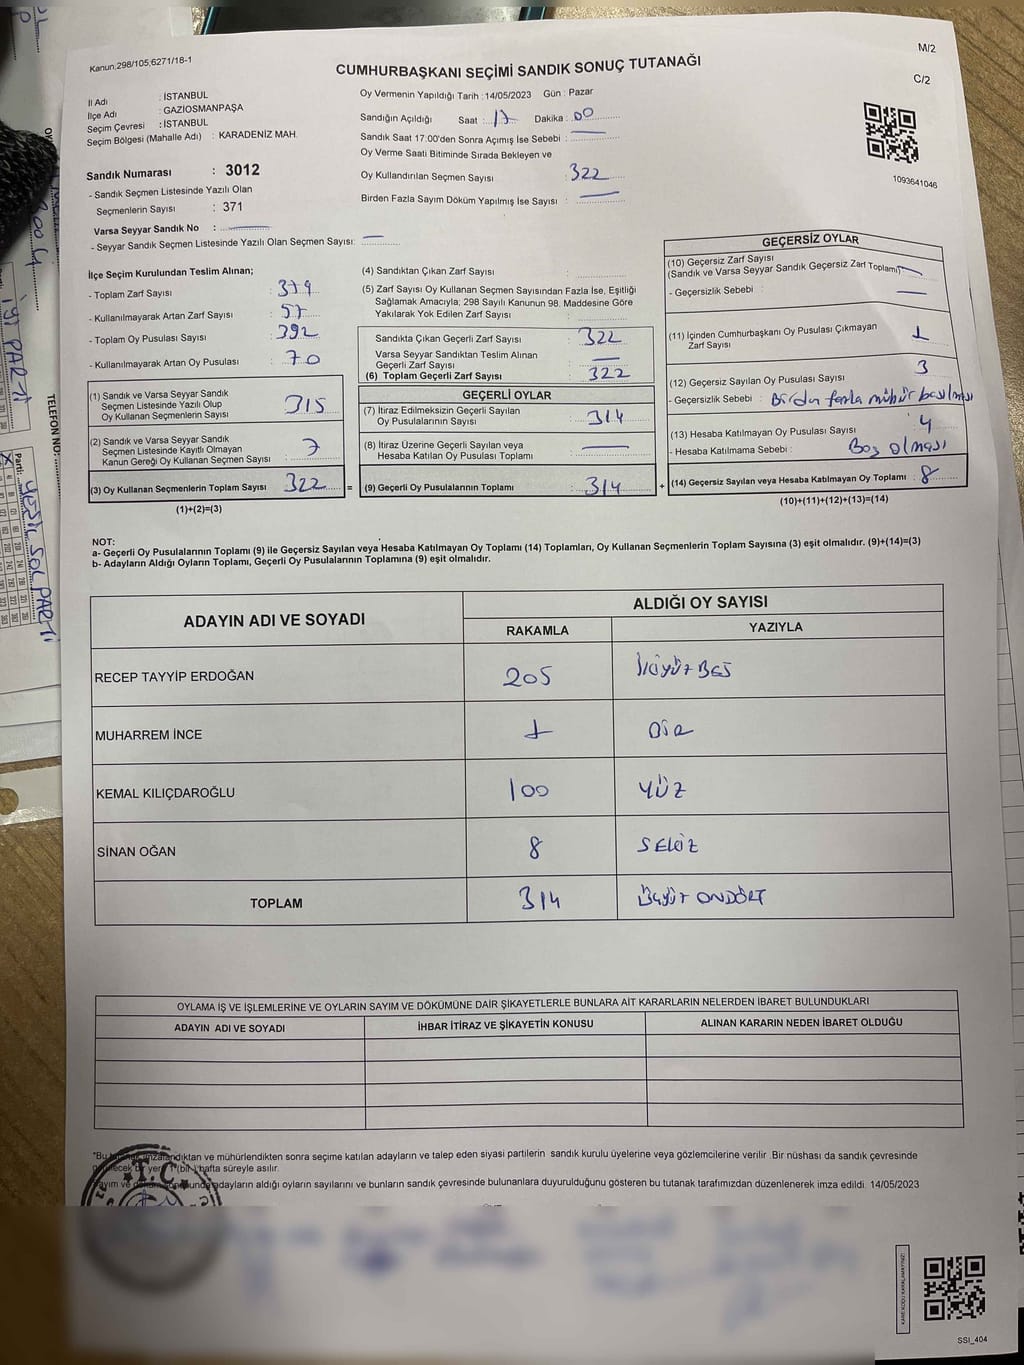 Kanun,298/105,6271/18-1
M/2
CUMHURBAŞKANI SEÇİMİ SANDIK SONUÇ TUTANAĞI
C/2
İl Adı : İSTANBUL
İlçe Adı : GAZİOSMANPAŞA
Seçim Çevresi : İSTANBUL
Seçim Bölgesi (Mahalle Adı) : KARADENİZ MAH.
Sandık Numarası : 3012
- Sandık Seçmen Listesinde Yazılı Olan
Seçmenlerin Sayısı : 371
Varsa Seyyar Sandık No :
- Seyyar Sandık Seçmen Listesinde Yazılı Olan Seçmen Sayısı:
Oy Vermenin Yapıldığı Tarih : 14/05/2023 Gün : Pazar
Sandığın Açıldığı Saat : 17 Dakika : 00
Sandık Saat 17:00'den Sonra Açımış İse Sebebi :
Oy Verme Saati Bitiminde Sırada Bekleyen ve
Oy Kullandırılan Seçmen Sayısı : 322
Birden Fazla Sayım Döküm Yapılmış İse Sayısı :
1093641046
İlçe Seçim Kurulundan Teslim Alınan;
- Toplam Zarf Sayısı : 379
- Kullanılmayarak Artan Zarf Sayısı : 57
- Toplam Oy Pusulası Sayısı : 392
- Kullanılmayarak Artan Oy Pusulası : 70
(1) Sandık ve Varsa Seyyar Sandık
Seçmen Listesinde Yazılı Olup
Oy Kullanan Seçmenlerin Sayısı : 315
(2) Sandık ve Varsa Seyyar Sandık
Seçmen Listesinde Kayıtlı Olmayan
Kanun Gereği Oy Kullanan Seçmen Sayısı : 7
(3) Oy Kullanan Seçmenlerin Toplam Sayısı : 322 =
(1)+(2)=(3)
(4) Sandıktan Çıkan Zarf Sayısı :
(5) Zarf Sayısı Oy Kullanan Seçmen Sayısından Fazla İse, Eşitliği
Sağlamak Amacıyla; 298 Sayılı Kanunun 98. Maddesine Göre
Yakılarak Yok Edilen Zarf Sayısı :
Sandıkta Çıkan Geçerli Zarf Sayısı : 322
Varsa Seyyar Sandıktan Teslim Alınan
Geçerli Zarf Sayısı :
(6) Toplam Geçerli Zarf Sayısı : 322
GEÇERLİ OYLAR
(7) İtiraz Edilmeksizin Geçerli Sayılan
Oy Pusulasının Sayısı : 314
(8) İtiraz Üzerine Geçerli Sayılan veya
Hesaba Katılan Oy Pusulası Toplamı :
(9) Geçerli Oy Pusulalarının Toplamı : 314 +
GEÇERSİZ OYLAR
(10) Geçersiz Zarf Sayısı
(Sandık ve Varsa Seyyar Sandık Geçersiz Zarf Toplamı)
- Geçersizlik Sebebi :
(11) İçinden Cumhurbaşkanı Oy Pusulası Çıkmayan
Zarf Sayısı : 1
(12) Geçersiz Sayılan Oy Pusulası Sayısı : 3
- Geçersizlik Sebebi : Birden fazla mühür basılması
(13) Hesaba Katılmayan Oy Pusulası Sayısı : 4
- Hesaba Katılmama Sebebi : Boş olması
(14) Geçersiz Sayılan veya Hesaba Katılmayan Oy Toplamı : 8
(10)+(11)+(12)+(13)=(14)
NOT:
a- Geçerli Oy Pusulalarının Toplamı (9) ile Geçersiz Sayılan veya Hesaba Katılmayan Oy Toplamı (14) Toplamları, Oy Kullanan Seçmenlerin Toplam Sayısına (3) eşit olmalıdır. (9)+(14)=(3)
b- Adayların Aldığı Oyların Toplamı, Geçerli Oy Pusulalarının Toplamına (9) eşit olmalıdır.
ADAYIN ADI VE SOYADI
ALDIĞI OY SAYISI
RAKAMLA YAZIYLA
RECEP TAYYİP ERDOĞAN 205 İKİYÜZ BEŞ
MUHARREM İNCE 1 BİR
KEMAL KILIÇDAROĞLU 100 YÜZ
SİNAN OĞAN 8 SEKİZ
TOPLAM 314 ÜÇYÜZ ONDÖRT
OYLAMA İŞ VE İŞLEMLERİNE VE OYLARIN SAYIM VE DÖKÜMÜNE DAİR ŞİKAYETLERLE BUNLARA AİT KARARLARIN NELERDEN İBARET BULUNDUKLARI
ADAYIN ADI VE SOYADI
İHBAR İTİRAZ VE ŞİKAYETİN KONUSU
ALINAN KARARIN NEDEN İBARET OLDUĞU
*Bu imzalandıktan ve mühürlendikten sonra seçime katılan adayların ve talep eden siyasi partilerin sandık kurulu üyelerine veya gözlemcilerine verilir .Bir nüshası da sandık çevresinde
yere 1 (bir) hafta süreyle asılır.
adayların aldığı oyların sayılarını ve bunların sandık çevresinde bulunanlara duyurulduğunu gösteren bu tutanak tarafımızdan düzenlenerek imza edildi. 14/05/2023
T.C.
SSI_404
TELEFON NO:
Parti: YEŞİL SOL PARTİ
İYİ PARTİ